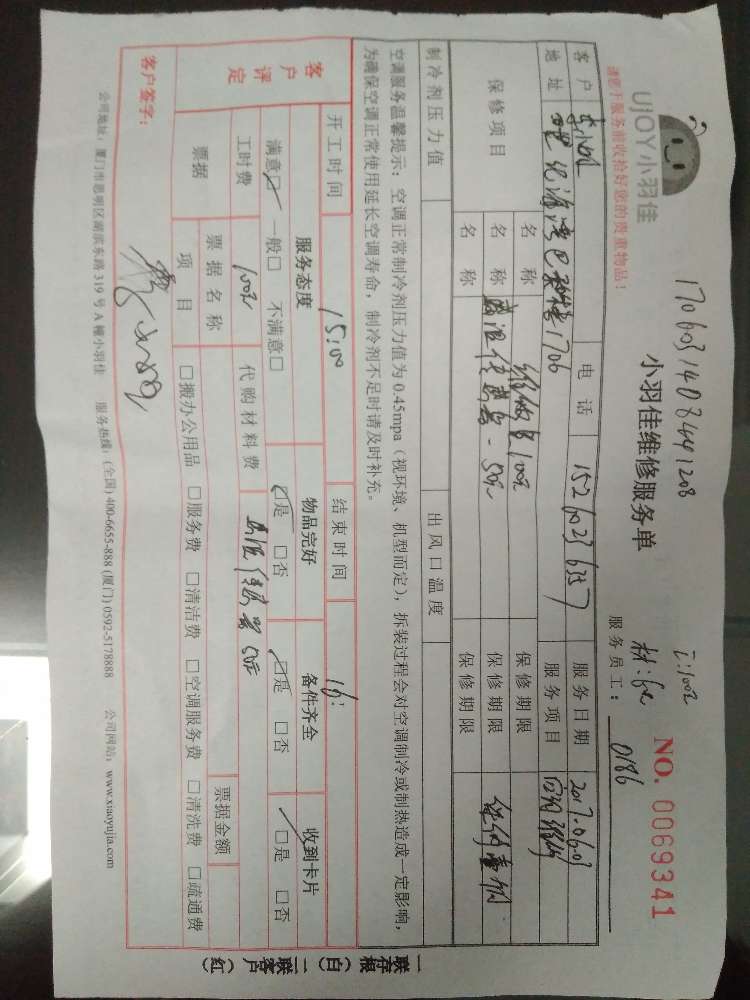 UJOY小羽佳
请您于服务前收拾好您的贵重物品！
小羽佳维修服务单
NO. 0069341
服务员工： 0186
客户
电话
服务日期 2017.06.03
地址
1706
服务项目
保修项目
名称
维修费100元
保修期限
名称
感温传感器-50元
保修期限
名称
保修期限
制冷剂压力值
出风口温度
空调服务温馨提示：空调正常制冷剂压力值为0.45mpa（视环境、机型而定），拆装过程会对空调制冷或制热造成一定影响，
为确保空调正常使用延长空调寿命，制冷剂不足时请及时补充。
开工时间 15:00 结束时间 16:
客户评定
服务态度 物品完好 备件齐全 收到卡片
满意□ 一般□ 不满意□ □是 □否 □是 □否 □是 □否
工时费 100元 代购材料费 感温传感器 50元
票据
票据名称
票据金额
项目
□搬办公用品 □服务费 □清洁费 □空调服务费 □清洗费 □疏通费
客户签字：
公司地址：厦门市思明区湖滨东路319号A幢小羽佳 服务热线：(全国) 400-6655-888 (厦门) 0592-5178888 公司网站：www.xiaoyujia.com
一联存根（白）二联客户（红）